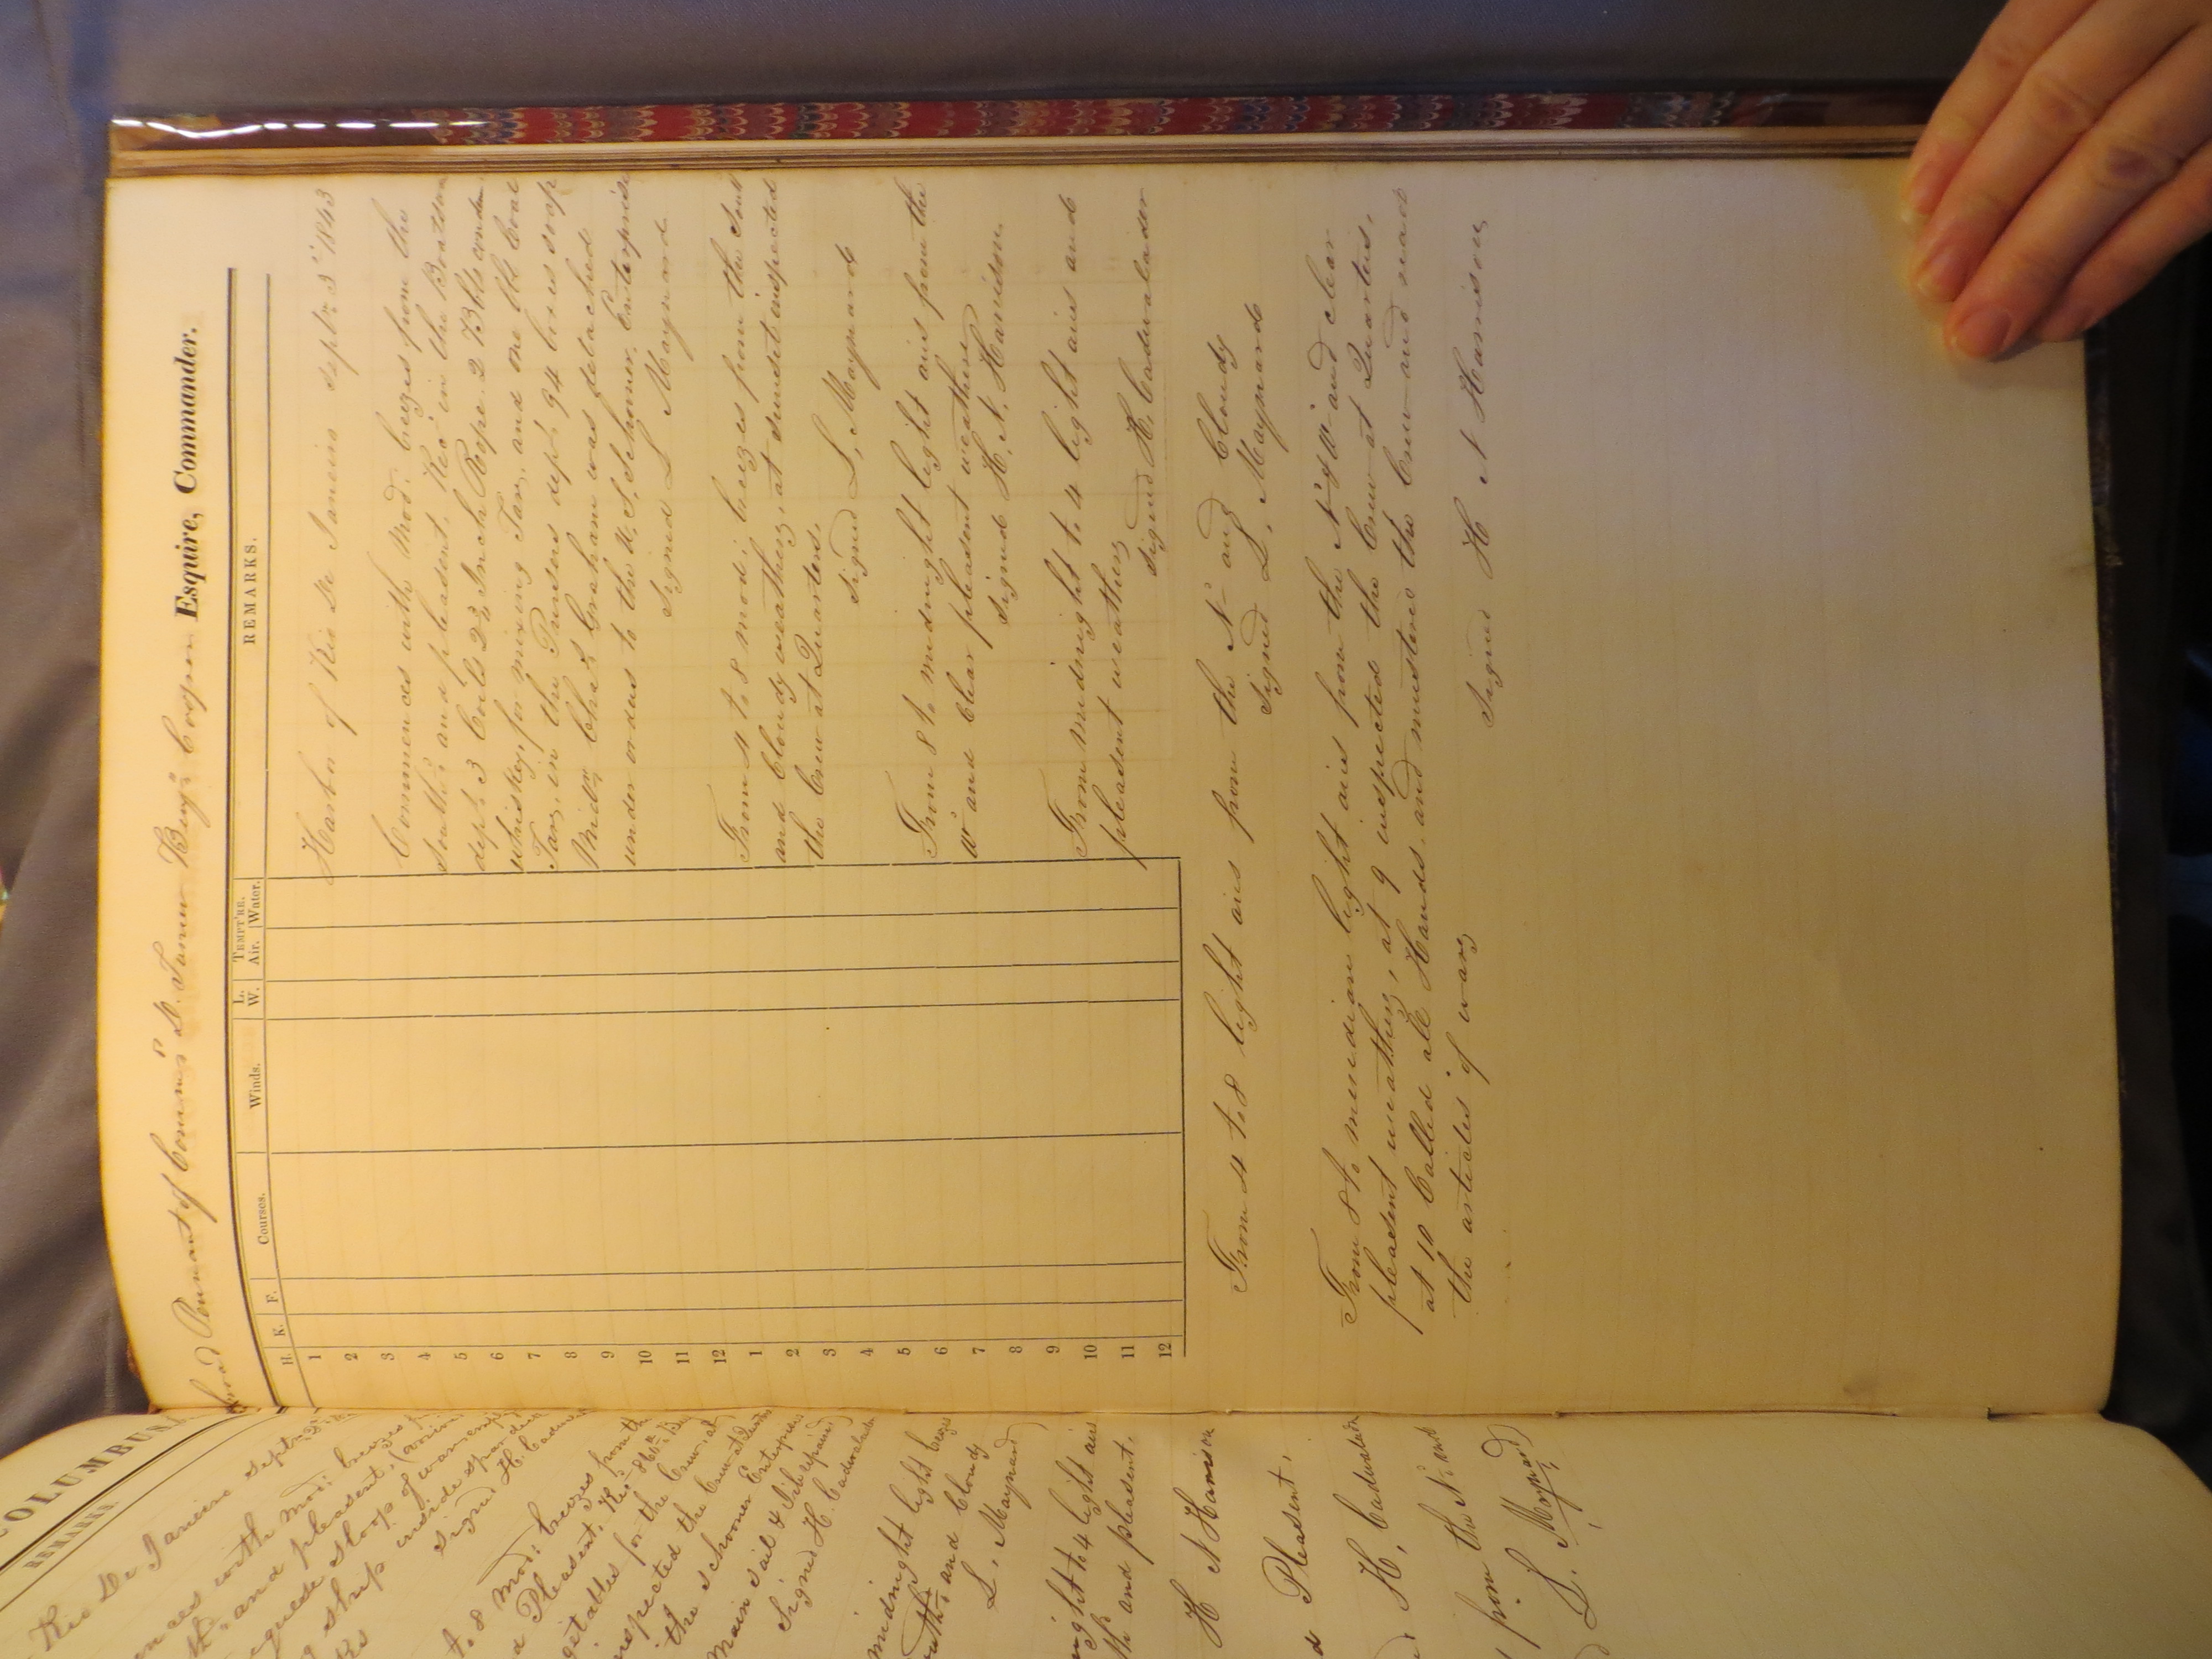 OLUMBUS.
REMARKS
Rio De Janeiro Septr 3rd
ences with Mod: breezes
th & and pleasent,
guese sloop of war
g ship inside
Signd H. Cadwa
to 8 Mod: breezes from th
d Pleasent, Recd
getables for the Crew, at
nspected the Crew at
the schooner Enterprise
Main sail & Jib repaired
Signed H. Cadwalader
midnight light breezes
and cloudy
L, Maynard
night to 4 light airs
th and pleasent,
H N Harrison
d Pleasent,
H, Cadwalader
from the N. and
L. Maynard
broad Pennant of Comre D. Turner Benj. Cooper Esquire, Commander.
H. K. F. Courses. Winds. L. W. TEMPT'RE. Air. Water. REMARKS.
1
2
3
4
5
6
7
8
9
10
11
12
1
2
3
4
5
6
7
8
9
10
11
12
Harbor of Rio De Janeiro Septr 3d 1843
Commences with Mod: breezes from the
Southd and pleasent, Recd in the Boatswn
dept 3 Coils 2¾ Inch Rope 2 Bbls
whiskey for mixing Tar, and one Bbl Coal
Tar, in the Pursers dept 94 boxes soap
Midn Chas Graham was detached
under orders to the U. S. Schooner Enterprise
Signed L Maynard
From 4 to 8 mod: breezes from the South
and Cloudy weather, at sunset inspected
the Crew at Quarters,
Signed L, Maynard
From 8 to midnight light airs from the
W and Clear pleasent weather
Signed H. N. Harrison
From midnight to 4 light airs and
pleasent weather,
Signed H. Cadwalader
From 4 to 8 light airs from the Nd and Cloudy
Signed L, Maynard
From 8 to meridian light airs from the Nd & Wd and clear
pleasent weather, at 9 inspected the Crew at Quarters,
at 10 Called all Hands and mustered the Crew and read
the articles of war
Signed H N Harrison